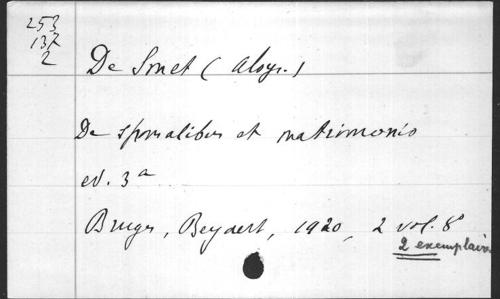 253
137
2
De Smet (Aloys.)
De sponsalibus et matrimonio
ed. 3a
Bruges, Beyaert, 1920, 2 vol. 8°
2 exemplaires